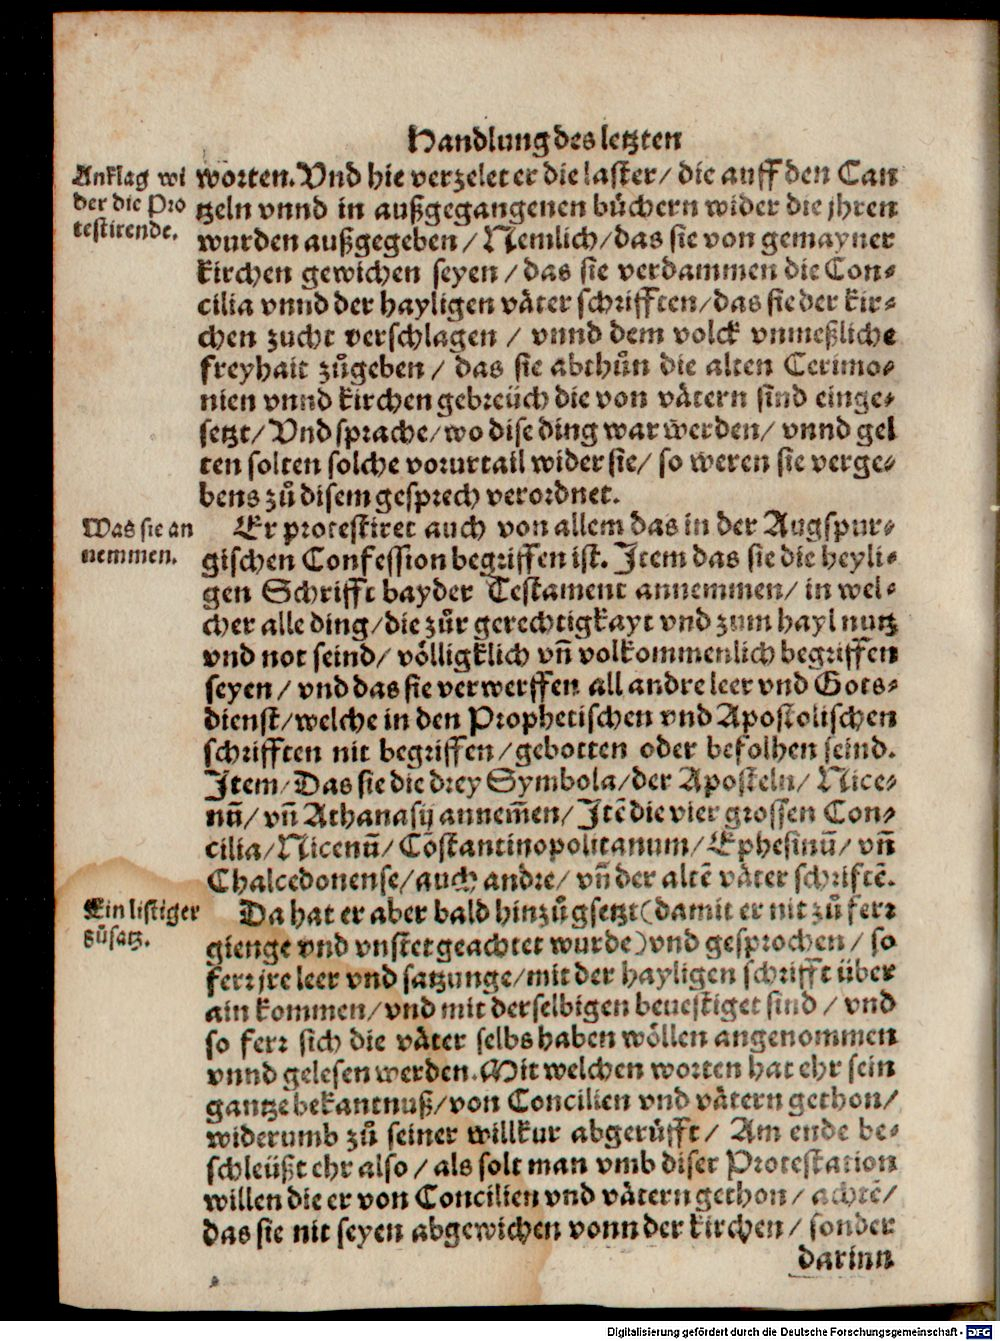 Handlung des letzten
Anklag wi
der die Pro
testirende.
worten. Vnd hie verzelet er die laster / die auff den Can
tzeln vnnd in außgegangenen bůchern wider die jhren
wurden außgegeben / Nemlich / das sie von gemayner
kirchen gewichen seyen / das sie verdammen die Con-
cilia vnnd der hayligen våter schrifften / das sie der kir-
chen zucht verschlagen / vnnd dem volck vnmeßliche
freyhait zůgeben / das sie abthůn die alten Cerimo-
nien vnnd kirchen gebreüch die von våtern sind einge-
setzt / Vnd sprache / wo dise ding war werden / vnnd gel
ten solten solche vorurtail wider sie / so weren sie verge-
bens zů disem gesprech verordnet.
Was sie an
nemmen.
Er protestiret auch von allem das in der Augspur-
gischen Confession begriffen ist. Item das sie die heyli-
gen Schrifft bayder Testament annemmen / in wel-
cher alle ding / die zůr gerechtigkayt vnd zum hayl nutz
vnd not seind / vôlligklich vñ volkommenlich begriffen
seyen / vnd das sie verwerffen all andre leer vnd Gots-
dienst / welche in den Prophetischen vnd Apostolischen
schrifften nit begriffen / gebotten oder befolhen seind.
Item / Das sie die drey Symbola / der Aposteln / Nice-
nū / vñ Athanasij annem̄en / Itē die vier grossen Con-
cilia / Nicenū / Cōstantinopolitanum / Ephesinū / vñ
Chalcedonense / auch andre / vñ der altē våter schriftē.
Ein listiger
zůsatz.
Da hat er aber bald hinzůgsetzt (damit er nit zů ferr
gienge vnd vnstet geachtet wurde) vnd gesprochen / so
ferr jre leer vnd satzunge / mit der hayligen schrifft über
ain kommen / vnd mit derselbigen beuestiget sind / vnd
so ferr sich die våter selbs haben wôllen angenommen
vnnd gelesen werden. Mit welchen worten hat ehr sein
gantze bekantnuß / von Concilien vnd våtern gethon /
widerumb zů seiner willkur abgerůfft / Am ende be-
schleüßt ehr also / als solt man vmb diser Protestation
willen die er von Concilien vnd våtern gethon / achtē /
das sie nit seyen abgewichen vonn der kirchen / sonder
darinn
Digitalisierung gefördert durch die Deutsche Forschungsgemeinschaft - DFG